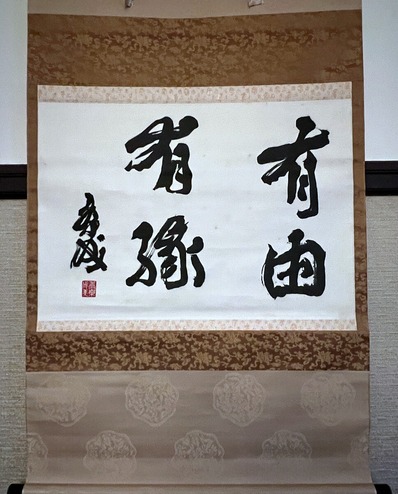 有由
有縁